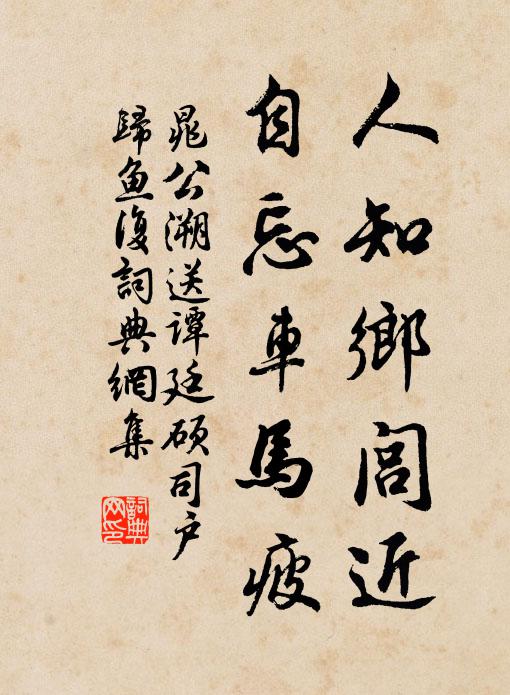 人知鄉閭近
自忘車馬疲
晁公溯送譚廷碩司户
歸魚復詞典網集
詞典
网印